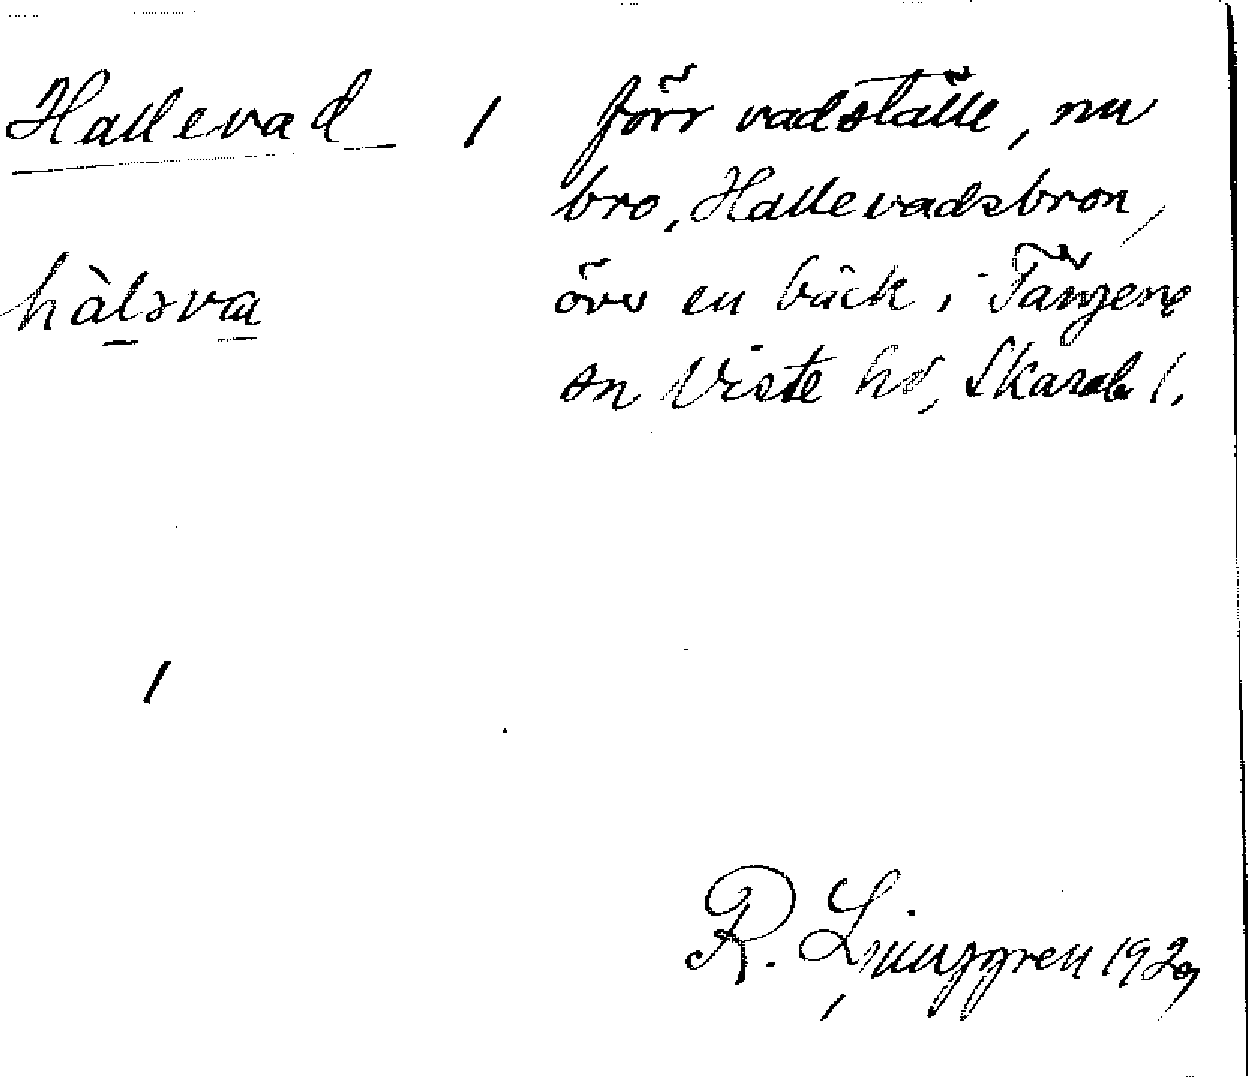 Hallevad
hàləva
förr vadställe, nu
bro, Hallevadsbron,
över en bäck i Tängene
sn Viste hd, Skarab l.
R. Ljunggren 1929